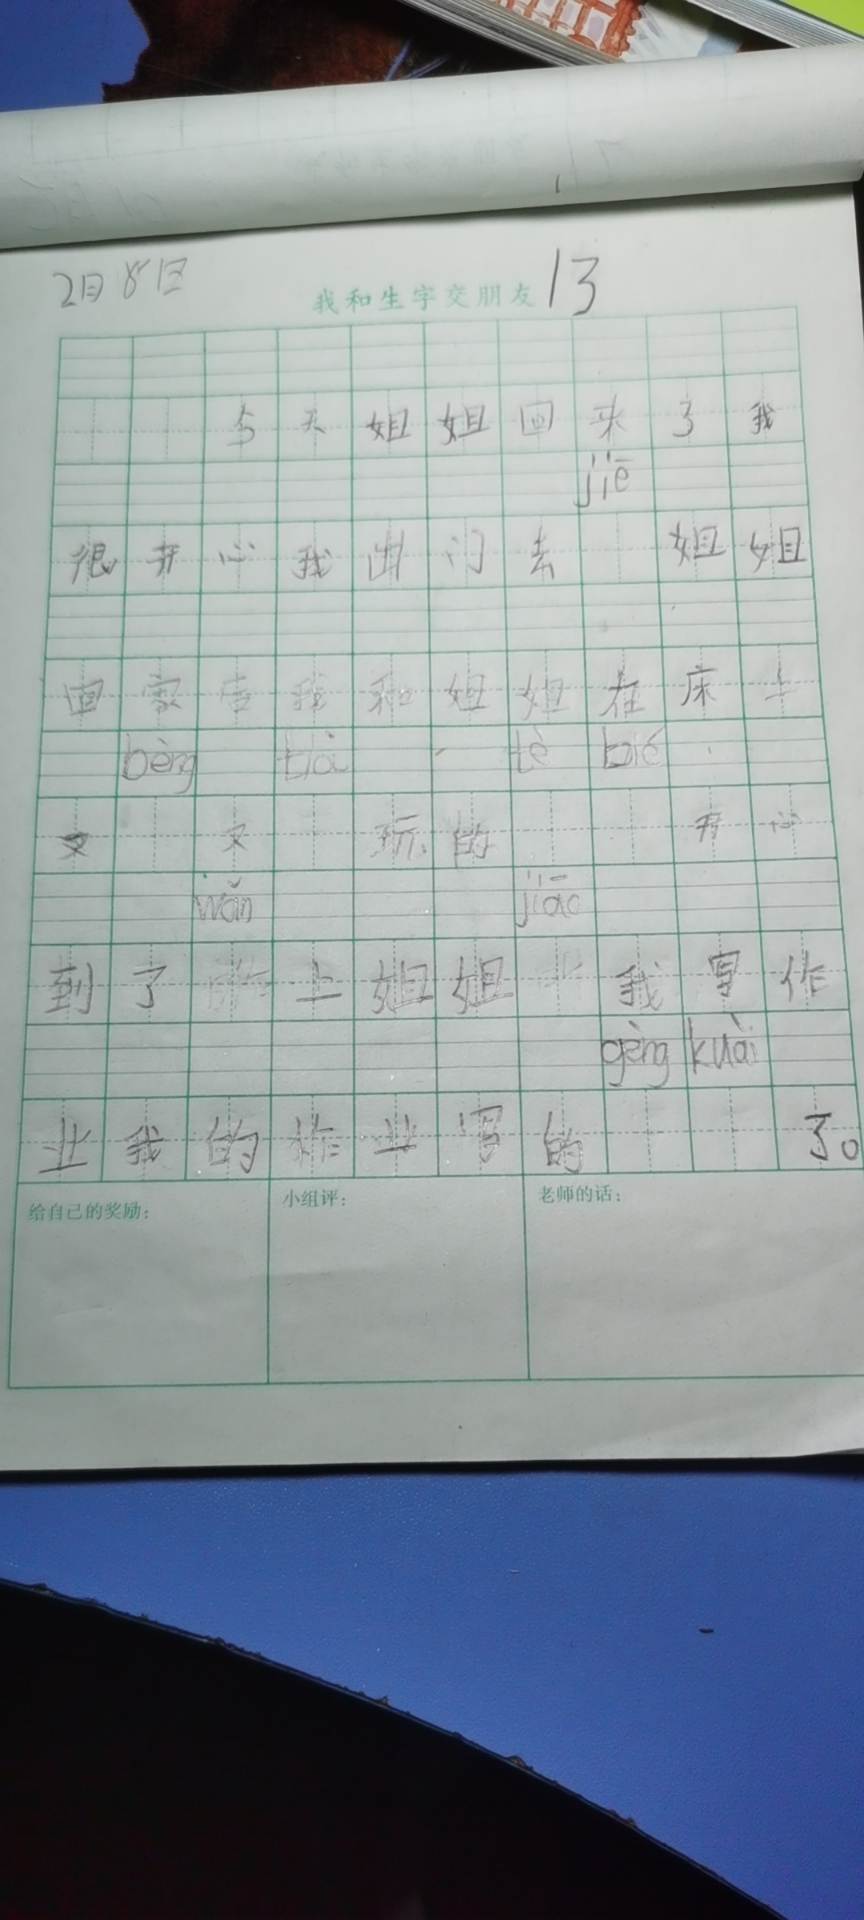 2月8日
我和生字交朋友 13
今天姐姐回来了我
jiē
很开心我出门去 姐姐
回家后我和姐姐在床上
bèng tiào tè bié
又 又 玩的 开心
wǎn jiāo
到了 上姐姐 我写作
gèng kuài
业我的作业写的 了。
给自己的奖励:
小组评:
老师的话: